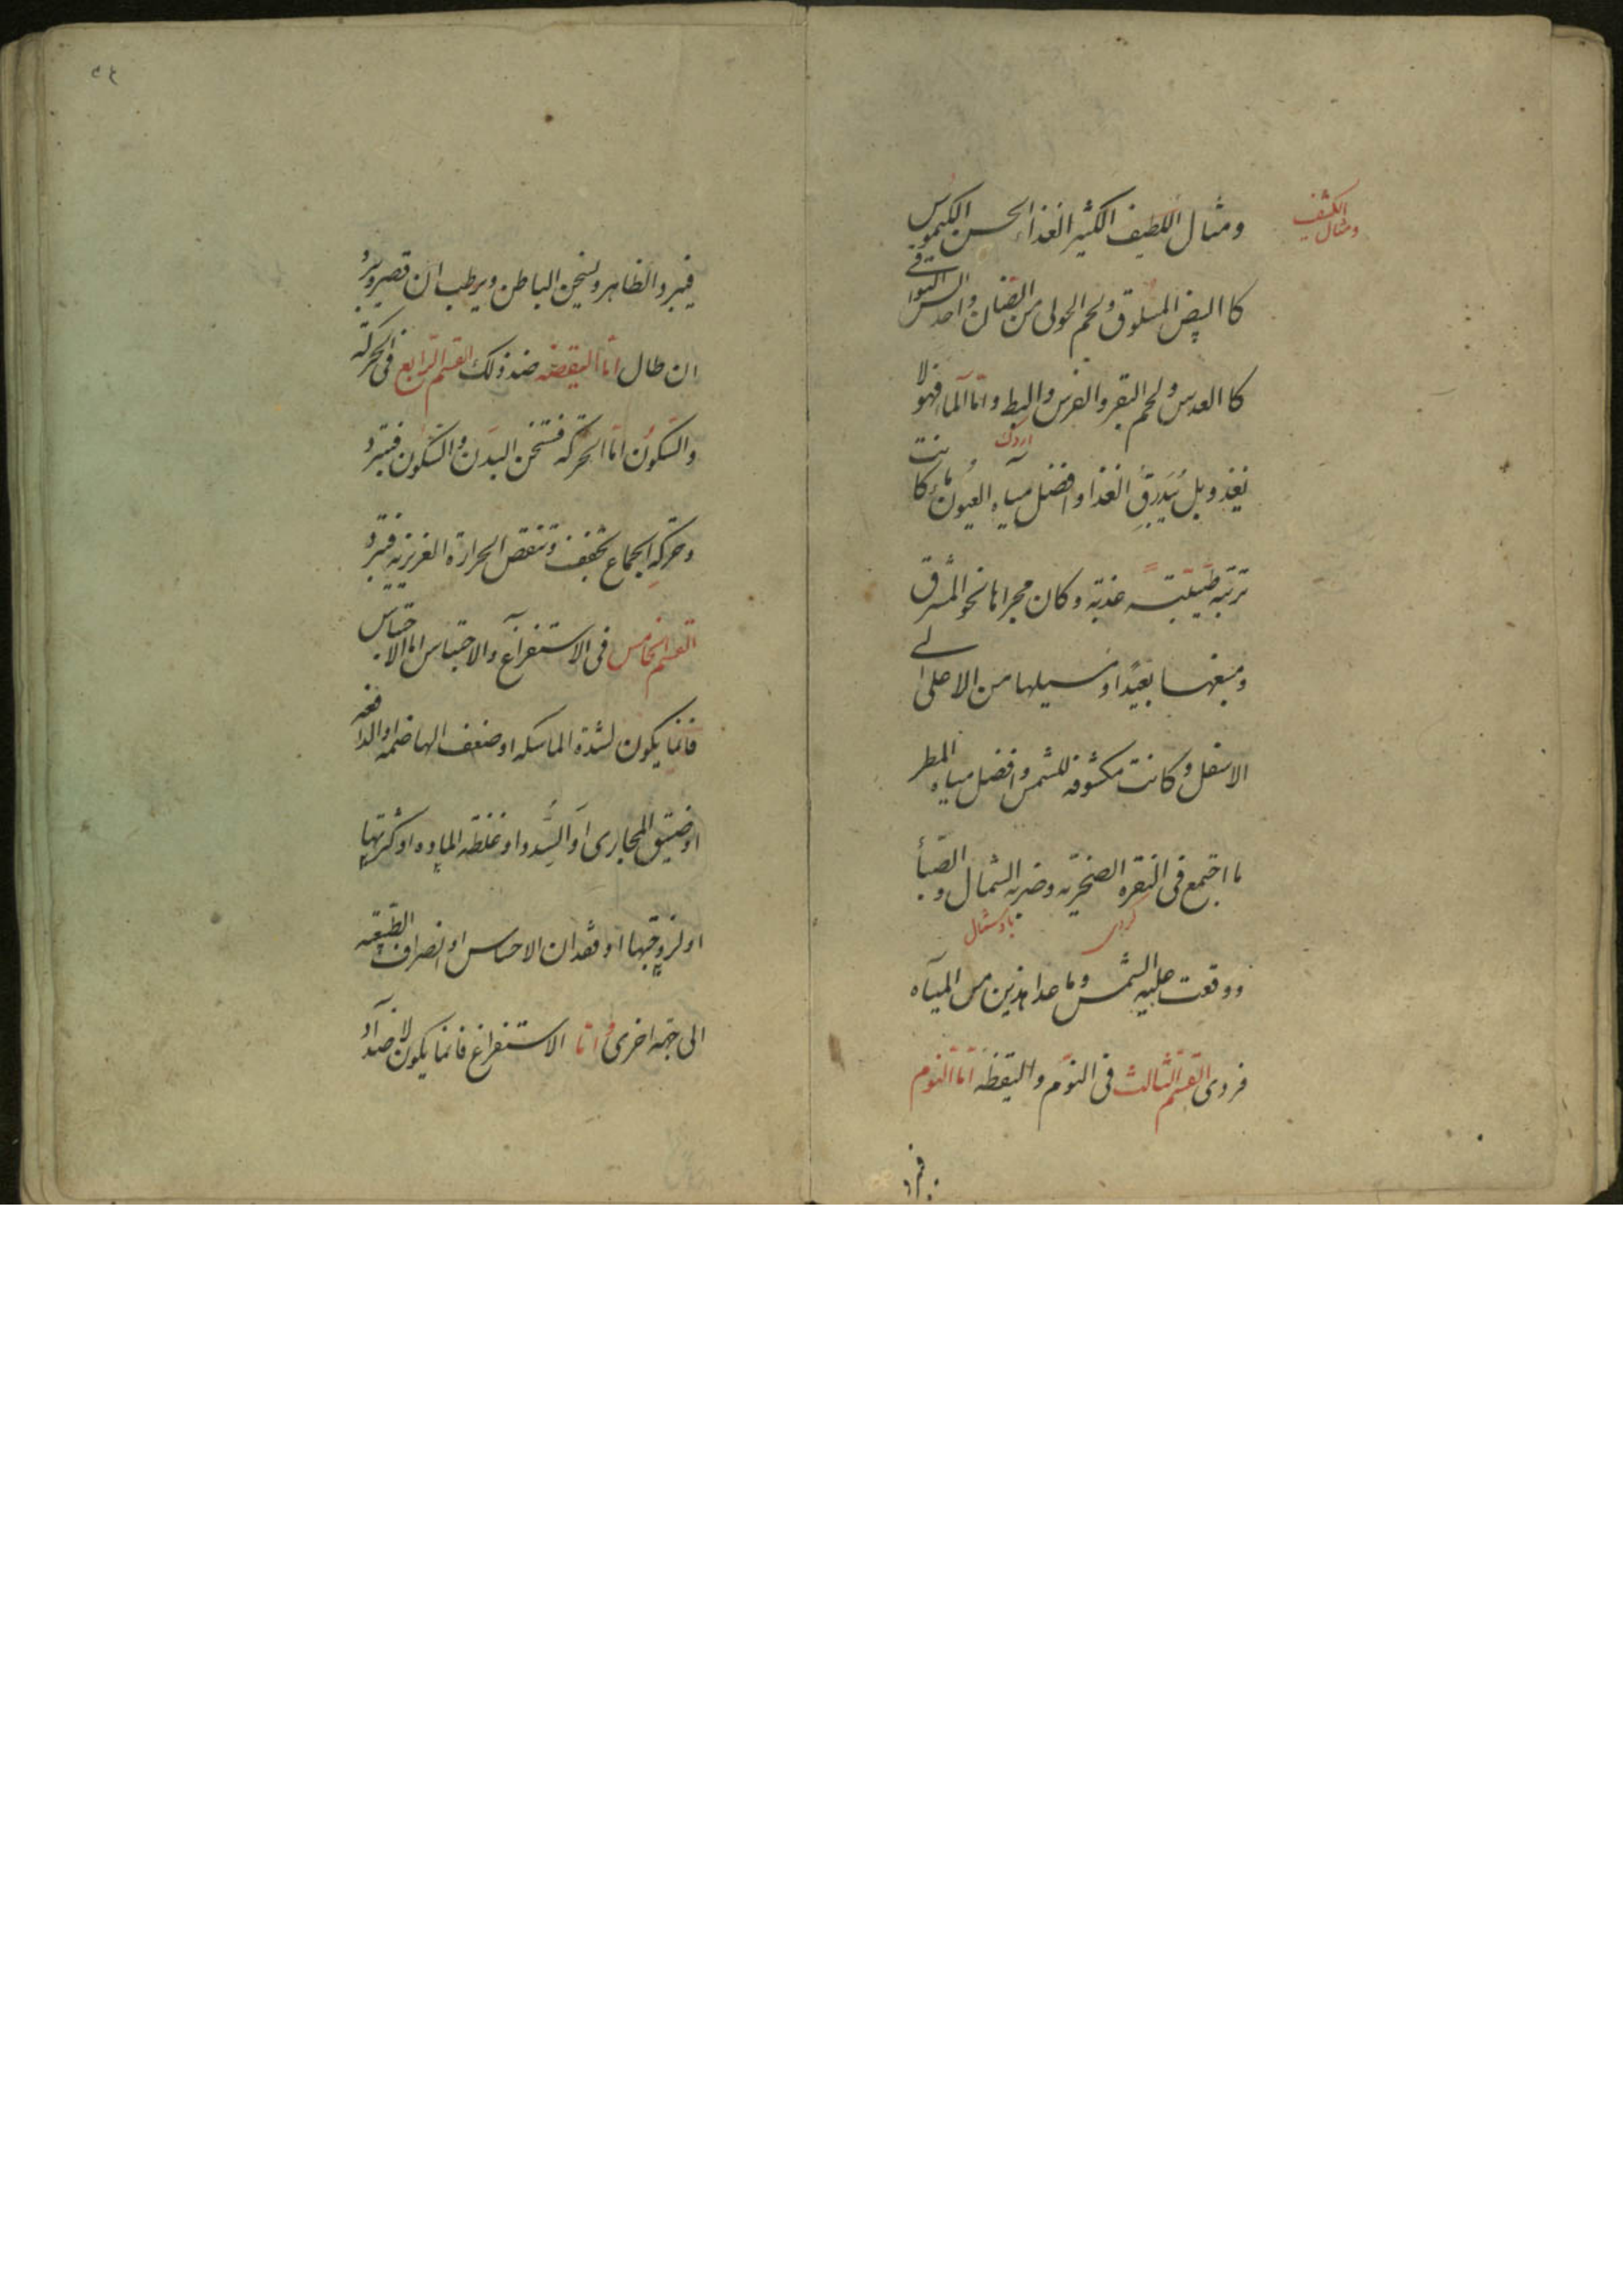 ومثال اللطيف الكثير الغذاء الحسن الكيموس
ومثال الكثيف
كا البيض المسلوق ولحم الحولى من الضان واحد السن البواقى
كا العدس ولحم البقر والفرس والبط واما الماء فهو لا
اردك
يغذو بل يبدرق الغذا وافضل مياه العيون ماء كانت
تربته طيبة عذبة وكان مجراها نحو المشرق
ومنبعها بعيدا وسيلها من الاعلى الى
الاسفل وكانت مكشوفه للشمس وافضل مياه المطر
ما اجتمع فى النقره الصخريه وضربه الشمال والصبا
باد شمال
ووقعت عليه الشمس وما عدا هذين من المياه
فردى القسم الثالث فى النوم واليقظه اما النوم
٥٤
فيبرد الظاهر ويسخن الباطن ويرطب ان قصر ويبرد
ان طال اما اليقضه ضد ذلك القسم الرابع فى الحركه
والسكون اما الحركه فتسخن البدن والسكون فيبرد
وحركه الجماع تجفف وتنقص الحرارة الغريزيه فتبرد
القسم الخامس فى الاستفراغ والاحتباس اما الاحتباس
فانما يكون لشدة الماسكه او ضعف الهاضمه او الدافعه
او ضيق المجارى او السدد او غلظه الماده او كثرتها
او لزوجتها او فقدان الاحساس او انصراف الطبيعه
الى جهه اخرى واما الاستفراغ فانما يكون لاضداد